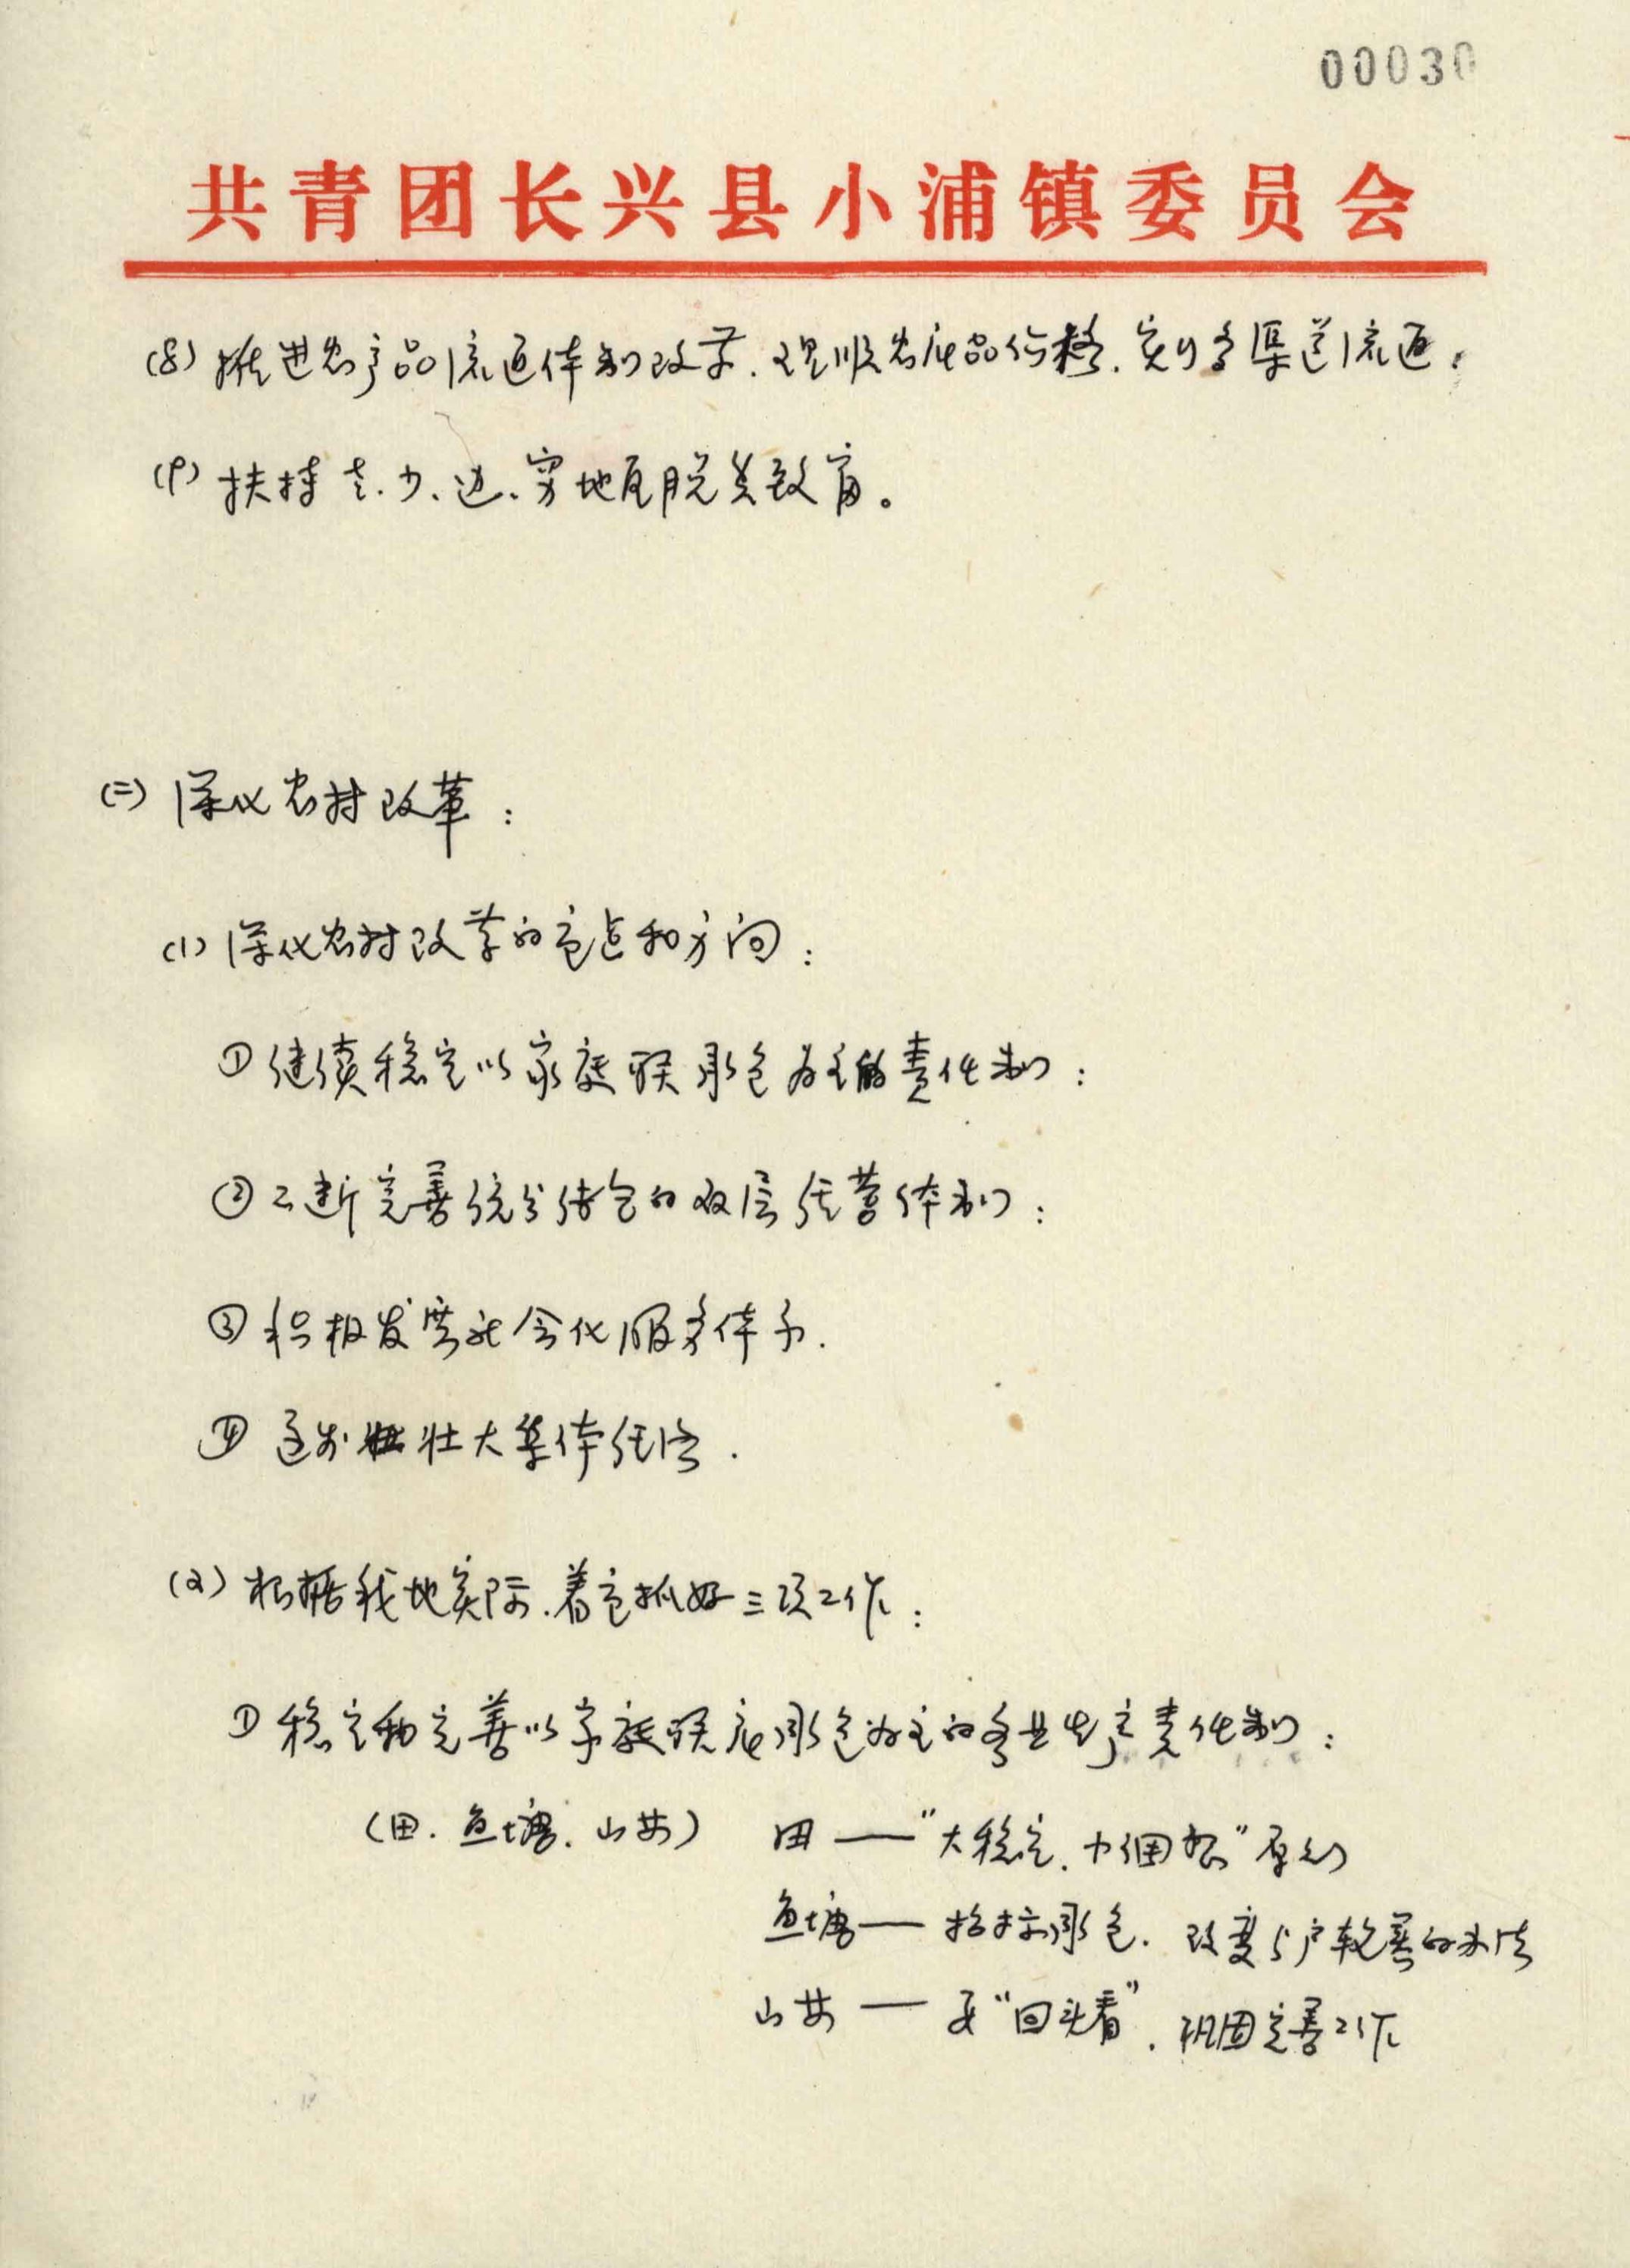 00030
共青团长兴县小浦镇委员会
(8) 推进农产品流通体制改革.理顺农产品价格.实行多渠道流通;
(9) 扶持老、少、边、穷地区脱贫致富。
(二) 深化农村改革:
(1) 深化农村改革的重点和方向:
①继续稳定以家庭联承包为主的责任制:
②不断完善统分结合的双层经营体制:
③积极发展社会化服务体系.
④逐步壮大集体经济.
(2) 根据我地实际.着重抓好三项工作:
①稳定和完善以家庭联产承包为主的各业生产责任制:
(田.鱼塘.山林) 田——"大稳定.小调整"原则
鱼塘——招标承包.改变 户轮养的办法
山林——要"回头看".巩固完善工作